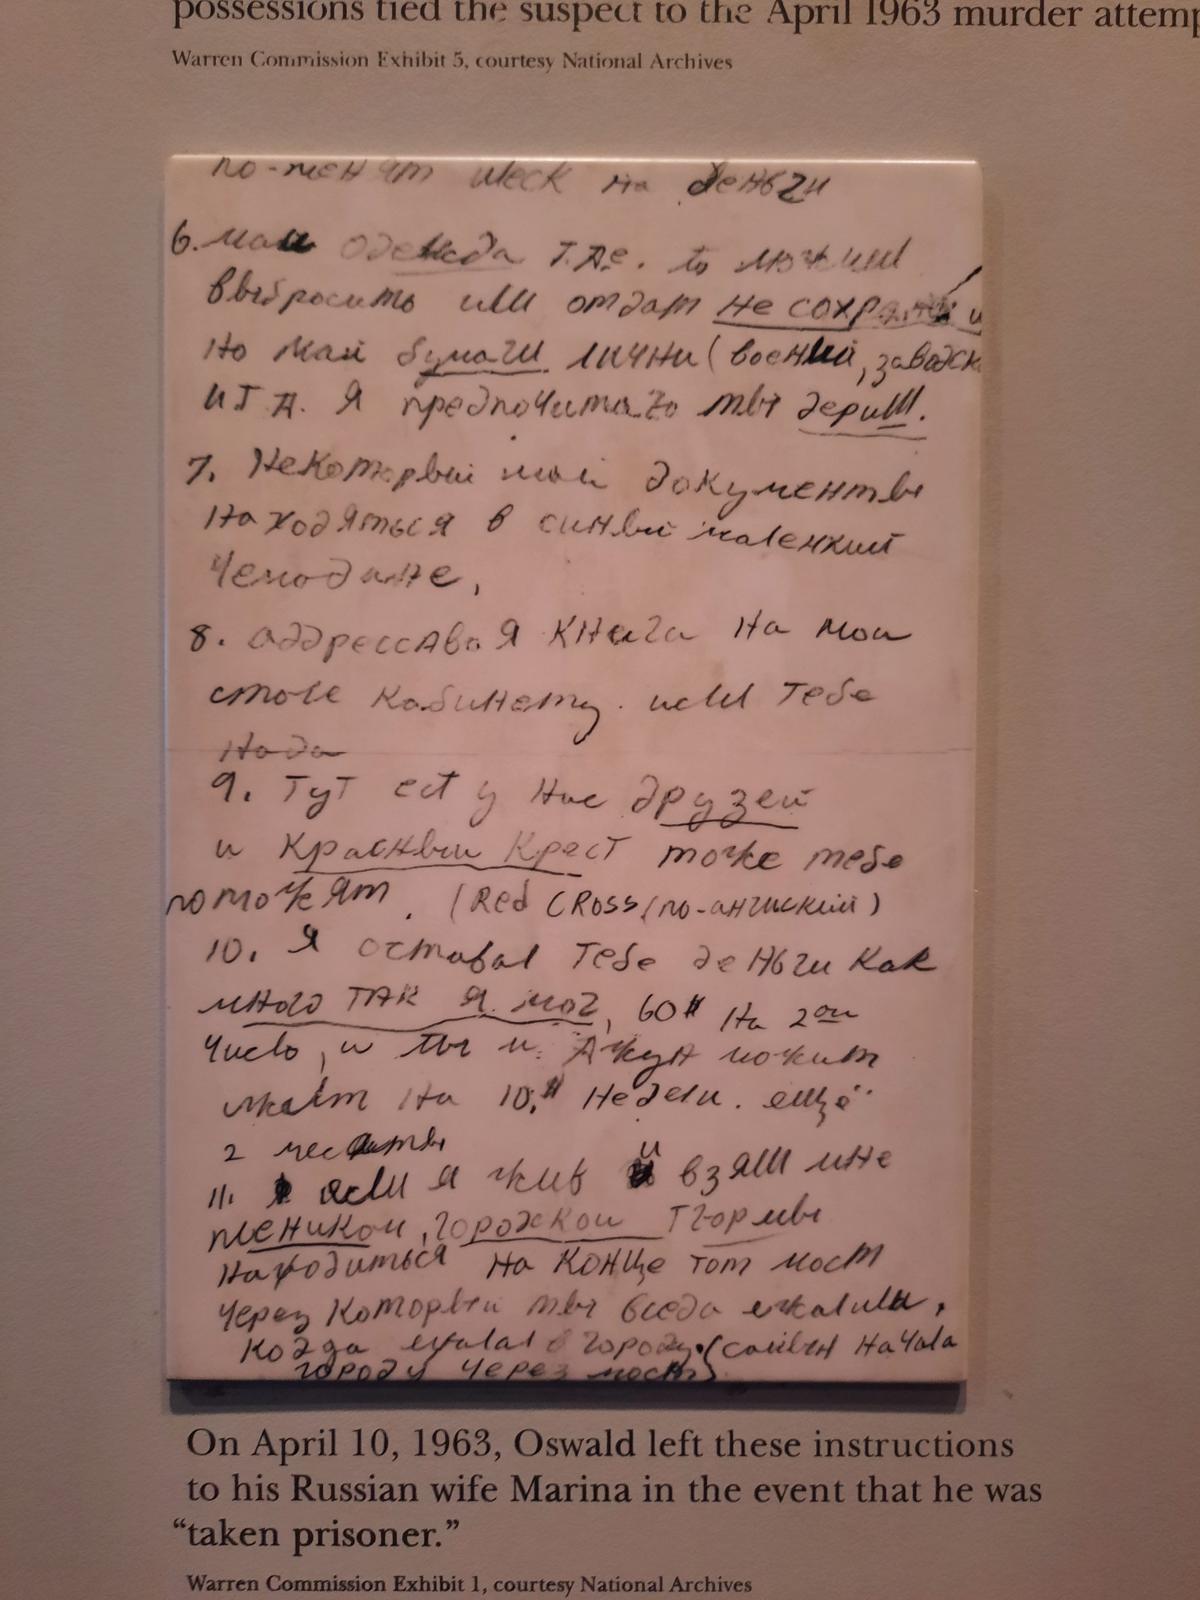 possessions tied the suspect to the April 1963 murder attemp
Warren Commission Exhibit 5, courtesy National Archives
по-менят шеск на деньги
6. маи одежда т.д.е. то можит
выбросить или отдат не сохр
но май бумаги личны (военый, заводск
и т д. я предпочита то ты держиш.
7. Некоторый маи документы
находяться в синый маленкий
чемодане,
8. аддрессавая книга на мои
столе кабинету. исли тебе
нада
9. Тут ест у нас друзей
и Красный Крест може тебе
поможят. (Red CRoss, (по-английский)
10. я оставал тебе деньги как
много так я мог, 60$ на 2ои
число, и ты и Джун можит
жить на 10.$ недели. ещё
2 месяты
11. если я жив и взяли мне
плеником, горожкой тюрмы
находиться на конце тот мост
через который ты вседа ехалили,
когда ехалал в городу. (самый начала
городу через мост)
On April 10, 1963, Oswald left these instructions
to his Russian wife Marina in the event that he was
“taken prisoner.”
Warren Commission Exhibit 1, courtesy National Archives